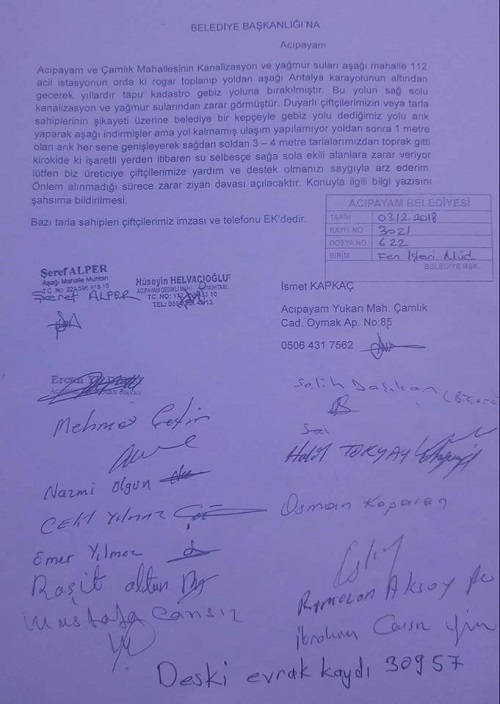 BELEDİYE BAŞKANLIĞI'NA
Acıpayam
Acıpayam ve Çamlık Mahallesinin Kanalizasyon ve yağmur suları aşağı mahalle 112
acil istasyonun orda ki rogar toplanıp yoldan aşağı Antalya karayolunun altından
geçerek yıllardır tapu kadastro gebiz yoluna bırakılmıştır. Bu yolun sağ solu
kanalizasyon ve yağmur sularından zarar görmüştür. Duyarlı çiftçilerimizin veya tarla
sahiplerinin şikayeti üzerine belediye bir kepçeyle gebiz yolu dediğimiz yolu arık
yaparak aşağı indirmişler ama yol kalmamış ulaşım yapılamıyor yoldan sonra 1 metre
olan arık her sene genişleyerek sağdan soldan 3 – 4 metre tarlalarımızdan toprak gitti
kirokide ki işaretli yerden itibaren su selbesçe sağa sola ekili alanlara zarar veriyor
lütfen biz üreticiye çiftçilerimize yardım ve destek olmanızı saygıyla arz ederim.
Önlem alınmadığı sürece zarar ziyan davası açılacaktır. Konuyla ilgili bilgi yazısını
şahsıma bildirilmesi.
Bazı tarla sahipleri çiftçilerimiz imzası ve telefonu EK'dedir.
ACIPAYAM BELEDİYESİ
TARİH 03.12.2018
KAYIT NO 3021
DOSYA NO 622
BİRİM Fen İşleri Müd.
BELEDİYE BŞK.
Şeref ALPER
Aşağı Mahalle Muhtarı
Şeref ALPER
Hüseyin HELVACIOĞLU
İsmet KAPKAÇ
Acıpayam Yukarı Mah. Çamlık
Cad. Oymak Ap. No:85
0506 431 7562
Salih Daşkan
Mehmet Çetin
Halil TOKYAY
Nazmi Olgun
Osman Kaparan
Celil Yılmaz
Ömer Yılmaz
Raşit altun
Ramazan Aksoy
Mustafa Cansız
İbrahim
Deski evrak kaydı 30957